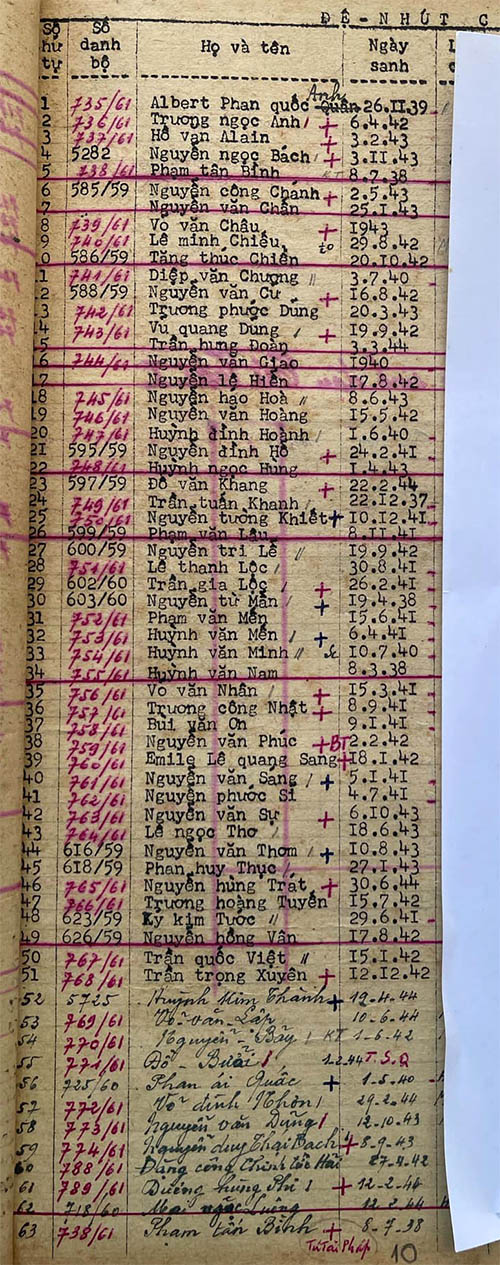 ĐỆ - NHÚT C
Số thứ tự Số danh bộ Họ và tên Ngày sanh
1 735/61 Albert Phan quốc Quân Anh 26.II.39
2 736/61 Trương ngọc Anh 6.4.42
3 737/61 Hồ văn Alain + 3.2.43
4 5282 Nguyễn ngọc Bách + 3.II.43
5 738/61 Phạm tấn Bỉnh KT 8.7.38
6 585/59 Nguyễn công Chanh + 2.5.43
7 Nguyễn văn Chấn 25.I.43
8 739/61 Võ văn Châu I943
9 740/61 Lê minh Chiếu 29.8.42
10 586/59 Tăng thúc Chiến 20.I0.42
11 741/61 Diệp văn Chương " 3.7.40
12 588/59 Nguyễn văn Cư + I6.8.42
13 742/61 Trương phước Dũng 20.3.43
14 743/61 Vũ quang Dũng + I9.9.42
15 Trần hưng Đoàn 3.3.44
16 744/61 Nguyễn văn Giao I940
17 Nguyễn lệ Hiền I7.8.42
18 745/61 Nguyễn hạo Hoà " 8.6.43
19 746/61 Nguyễn văn Hoàng I5.5.42
20 747/61 Huỳnh đình Hoành I.6.40
2I 595/59 Nguyễn đình Hồ + 24.2.4I
22 748/61 Huỳnh ngọc Hùng I.4.43
23 597/59 Đỗ văn Khang + 22.2.44
24 749/61 Trần tuấn Khanh 22.I2.37
25 750/61 Nguyễn tường Khiết + I0.I2.4I
26 599/59 Phạm văn Lậu 8.II.4I
27 600/59 Nguyễn tri Lễ " I9.9.42
28 751/61 Lê thanh Lộc 30.8.4I
29 602/60 Trần gia Lộc + 26.2.4I
30 603/60 Nguyễn từ Mẫn + I9.4.38
31 752/61 Phạm văn Mến I5.6.4I
32 753/61 Huỳnh văn Mến + 6.4.4I
33 754/61 Huỳnh văn Minh " I0.7.40
34 755/61 Huỳnh văn Nam 8.3.38
35 756/61 Võ văn Nhân + I5.3.4I
36 757/61 Trương công Nhật + 8.9.4I
37 758/61 Bùi văn Ơn 9.I.4I
38 759/61 Nguyễn văn Phúc + BT 2.2.42
39 760/61 Emile Lê quang Sang + I8.I.42
40 761/61 Nguyễn văn Sang + 5.I.4I
41 762/61 Nguyễn phước Sĩ 4.7.4I
42 763/61 Nguyễn văn Sự + 6.I0.43
43 764/61 Lê ngọc Thơ I8.6.43
44 616/59 Nguyễn văn Thơm + I0.8.43
45 618/59 Phan huy Thục 27.I.43
46 765/61 Nguyễn hùng Trát + 30.6.44
47 766/61 Trương hoàng Tuyển I5.7.42
48 623/59 Kỳ kim Tước " 29.6.4I
49 626/59 Nguyễn hồng Vân I7.8.42
50 767/61 Trần quốc Việt " I5.I.42
51 768/61 Trần trọng Xuyên + I2.I2.42
52 5725 Huỳnh Kim Thành + 19-4-44
53 769/61 Võ văn Lập 10-6-44
54 770/61 Nguyễn Bảy KT 1-6-42
55 771/61 Đỗ - Bưởi 1-2-44 T.S.Q
56 725/60 Phan ái Quấc + 1-5-40
57 772/61 Võ đình Nhôn 29-2-44
58 773/61 Nguyễn văn Dũng 12-10-43
59 774/61 Nguyễn duy Thái Bach + 8-9-43
60 788/61 Đặng công Chính tôn Hải 27-4-42
61 789/61 Dương hùng Phi + 12-2-44
62 718/60 Mai ngọc Lương 12-2-44
63 738/61 Phạm tấn Bỉnh + 8-7-38
Tú Tài Pháp 10